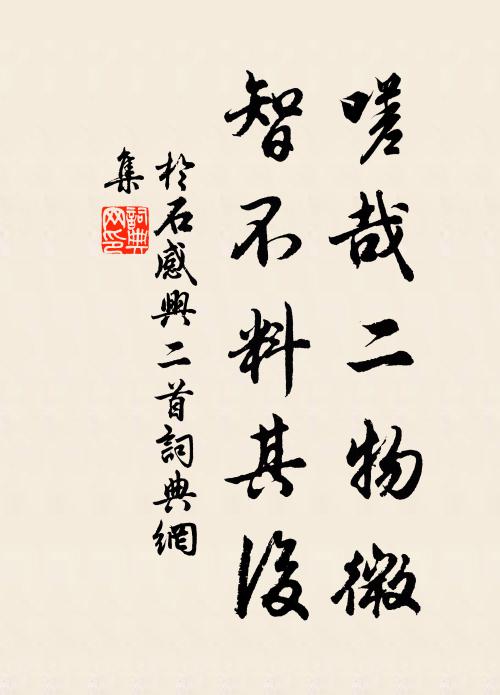 嗟哉二物微
智不料其後
於石感興二首詞典網
集
詞典
网印